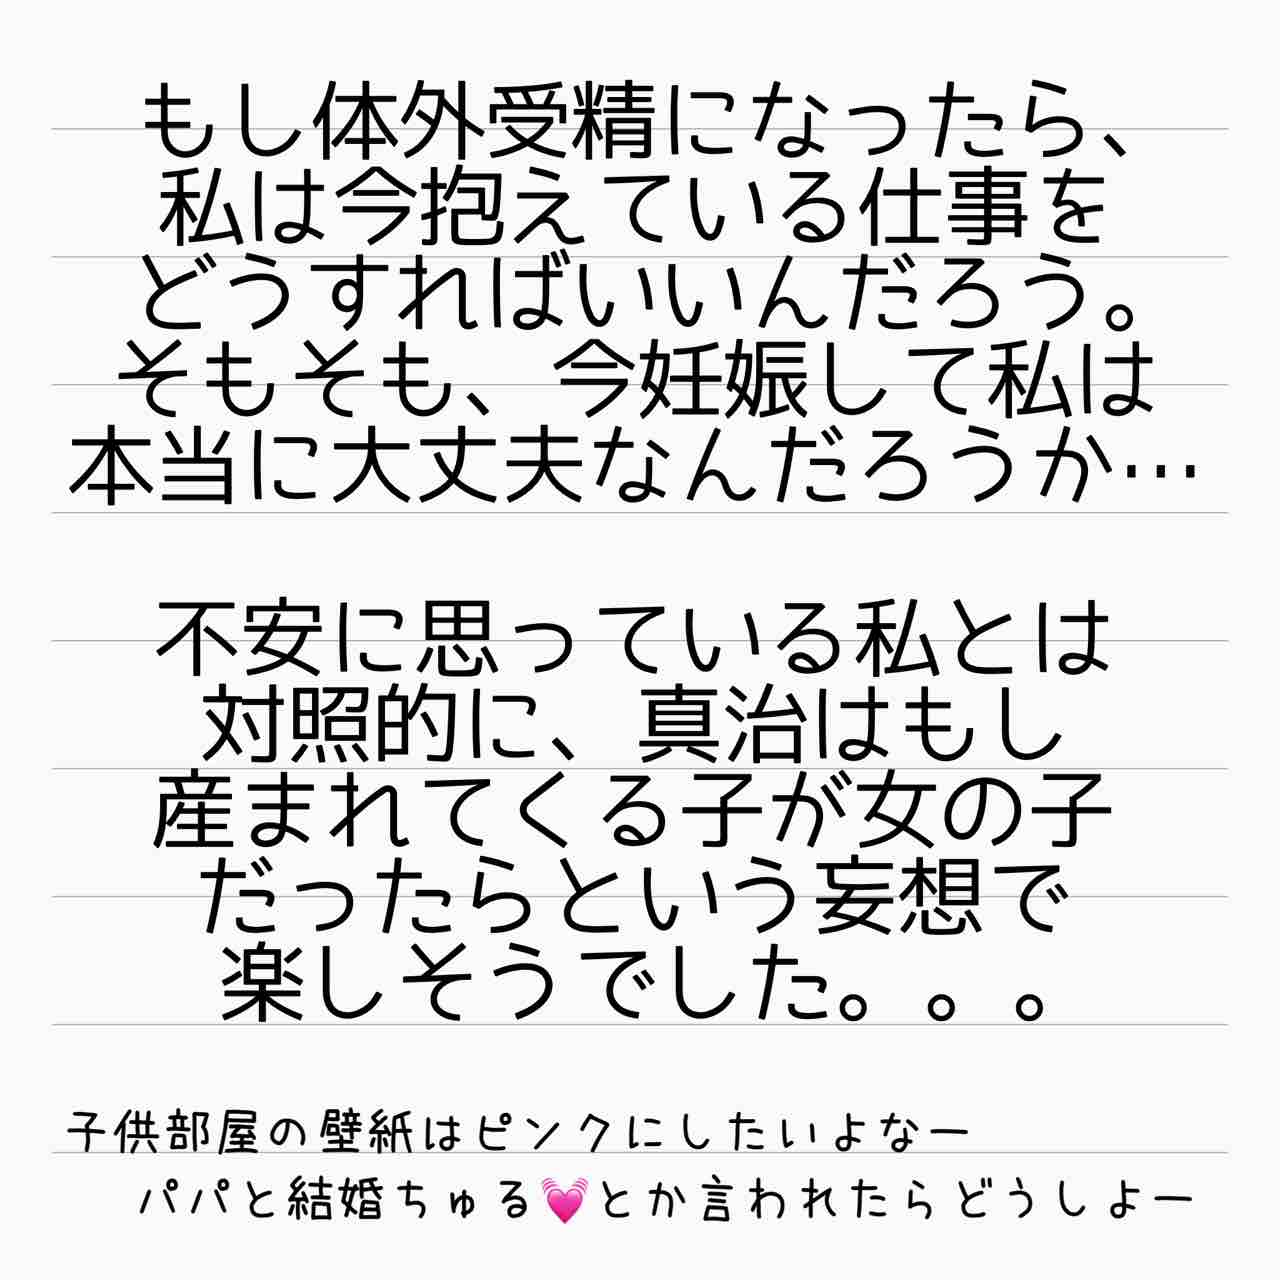 もし体外受精になったら、
私は今抱えている仕事を
どうすればいいんだろう。
そもそも、今妊娠して私は
本当に大丈夫なんだろうか…
不安に思っている私とは
対照的に、真治はもし
産まれてくる子が女の子
だったらという妄想で
楽しそうでした。。。
子供部屋の壁紙はピンクにしたいよなー
パパと結婚ちゅる💓とか言われたらどうしよー